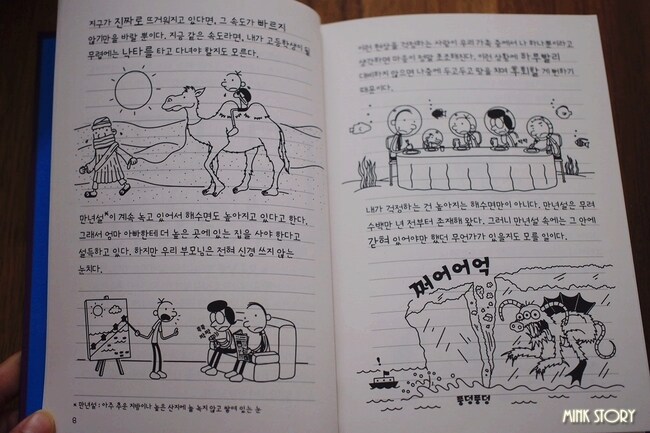 지구가 진짜로 뜨거워지고 있다면, 그 속도가 빠르지
않기만을 바랄 뿐이다. 지금 같은 속도라면, 내가 고등학생이 될
무렵에는 낙타를 타고 다녀야 할지도 모른다.
만년설*이 계속 녹고 있어서 해수면도 높아지고 있다고 한다.
그래서 엄마 아빠한테 더 높은 곳에 있는 집을 사야 한다고
설득하고 있다. 하지만 우리 부모님은 전혀 신경 쓰지 않는
눈치다.
* 만년설 : 아주 추운 지방이나 높은 산지에 늘 녹지 않고 쌓여 있는 눈
8
이런 현상을 걱정하는 사람이 우리 가족 중에서 나 하나뿐이라고
생각하면 마음이 정말 초조해진다. 이런 상황에 하루빨리
대비하지 않으면 나중에 두고두고 땅을 치며 후회할 게 뻔하기
때문이다.
내가 걱정하는 건 높아지는 해수면만이 아니다. 만년설은 무려
수백만 년 전부터 존재해 왔다. 그러니 만년설 속에는 그 안에
갇혀 있어야만 했던 무언가가 있을지도 모를 일이다.
쩌어어억
!
풍덩풍덩
MINK STORY